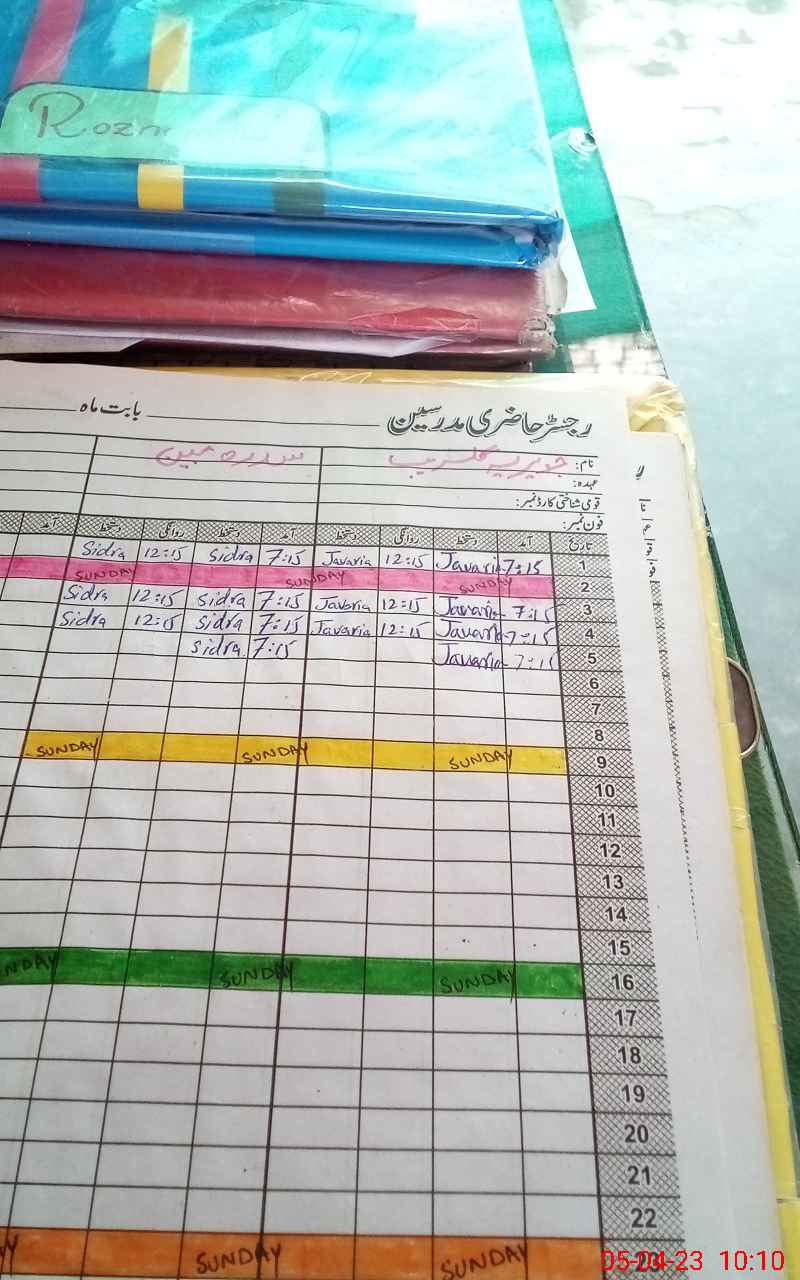 رجسٹر حاضری مدرسین بابت ماہ
نام: جویریہ سدرہ مبین
عہدہ:
قومی شناختی کارڈ نمبر:
فون نمبر:
تاریخ آمد دستخط روانگی دستخط آمد دستخط روانگی دستخط آمد
Sidra 12:15 Sidra 7:15 Javaria 12:15 Javaria 7:15 1
SUNDAY SUNDAY SUNDAY 2
Sidra 12:15 Sidra 7:15 Javaria 12:15 Javaria 7:15 3
Sidra 12:15 Sidra 7:15 Javaria 12:15 Javaria 7:15 4
Sidra 7:15 Javaria 7:15 5
6
7
8
SUNDAY SUNDAY SUNDAY 9
10
11
12
13
14
15
SUNDAY SUNDAY 16
17
18
19
20
21
22
SUNDAY SUNDAY 23
05-04-23 10:10